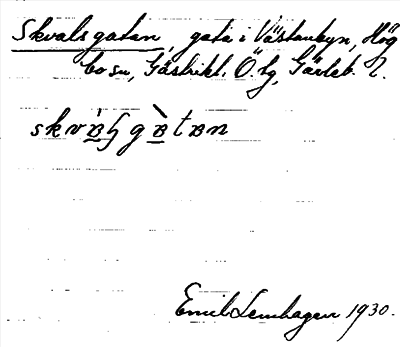 Skvalsgatan, gata i Västanbyn, Hög
bo sn, Gästrikl. Ö. tg, Gävleb. l.
skvàʂ gàtan
Emil Lennhagen 1930.